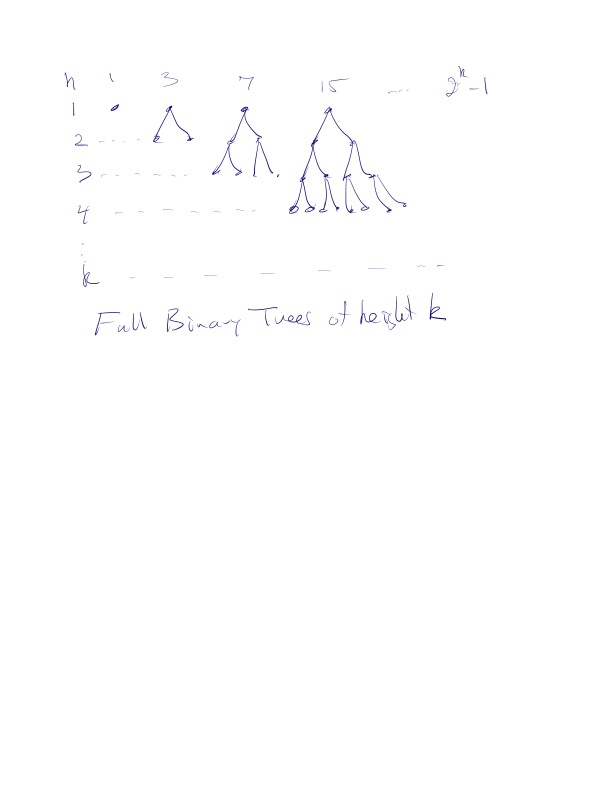 n 1 3 7 15 ---- 2^k - 1
1
2
3
4
:
k
Full Binary Trees of height k